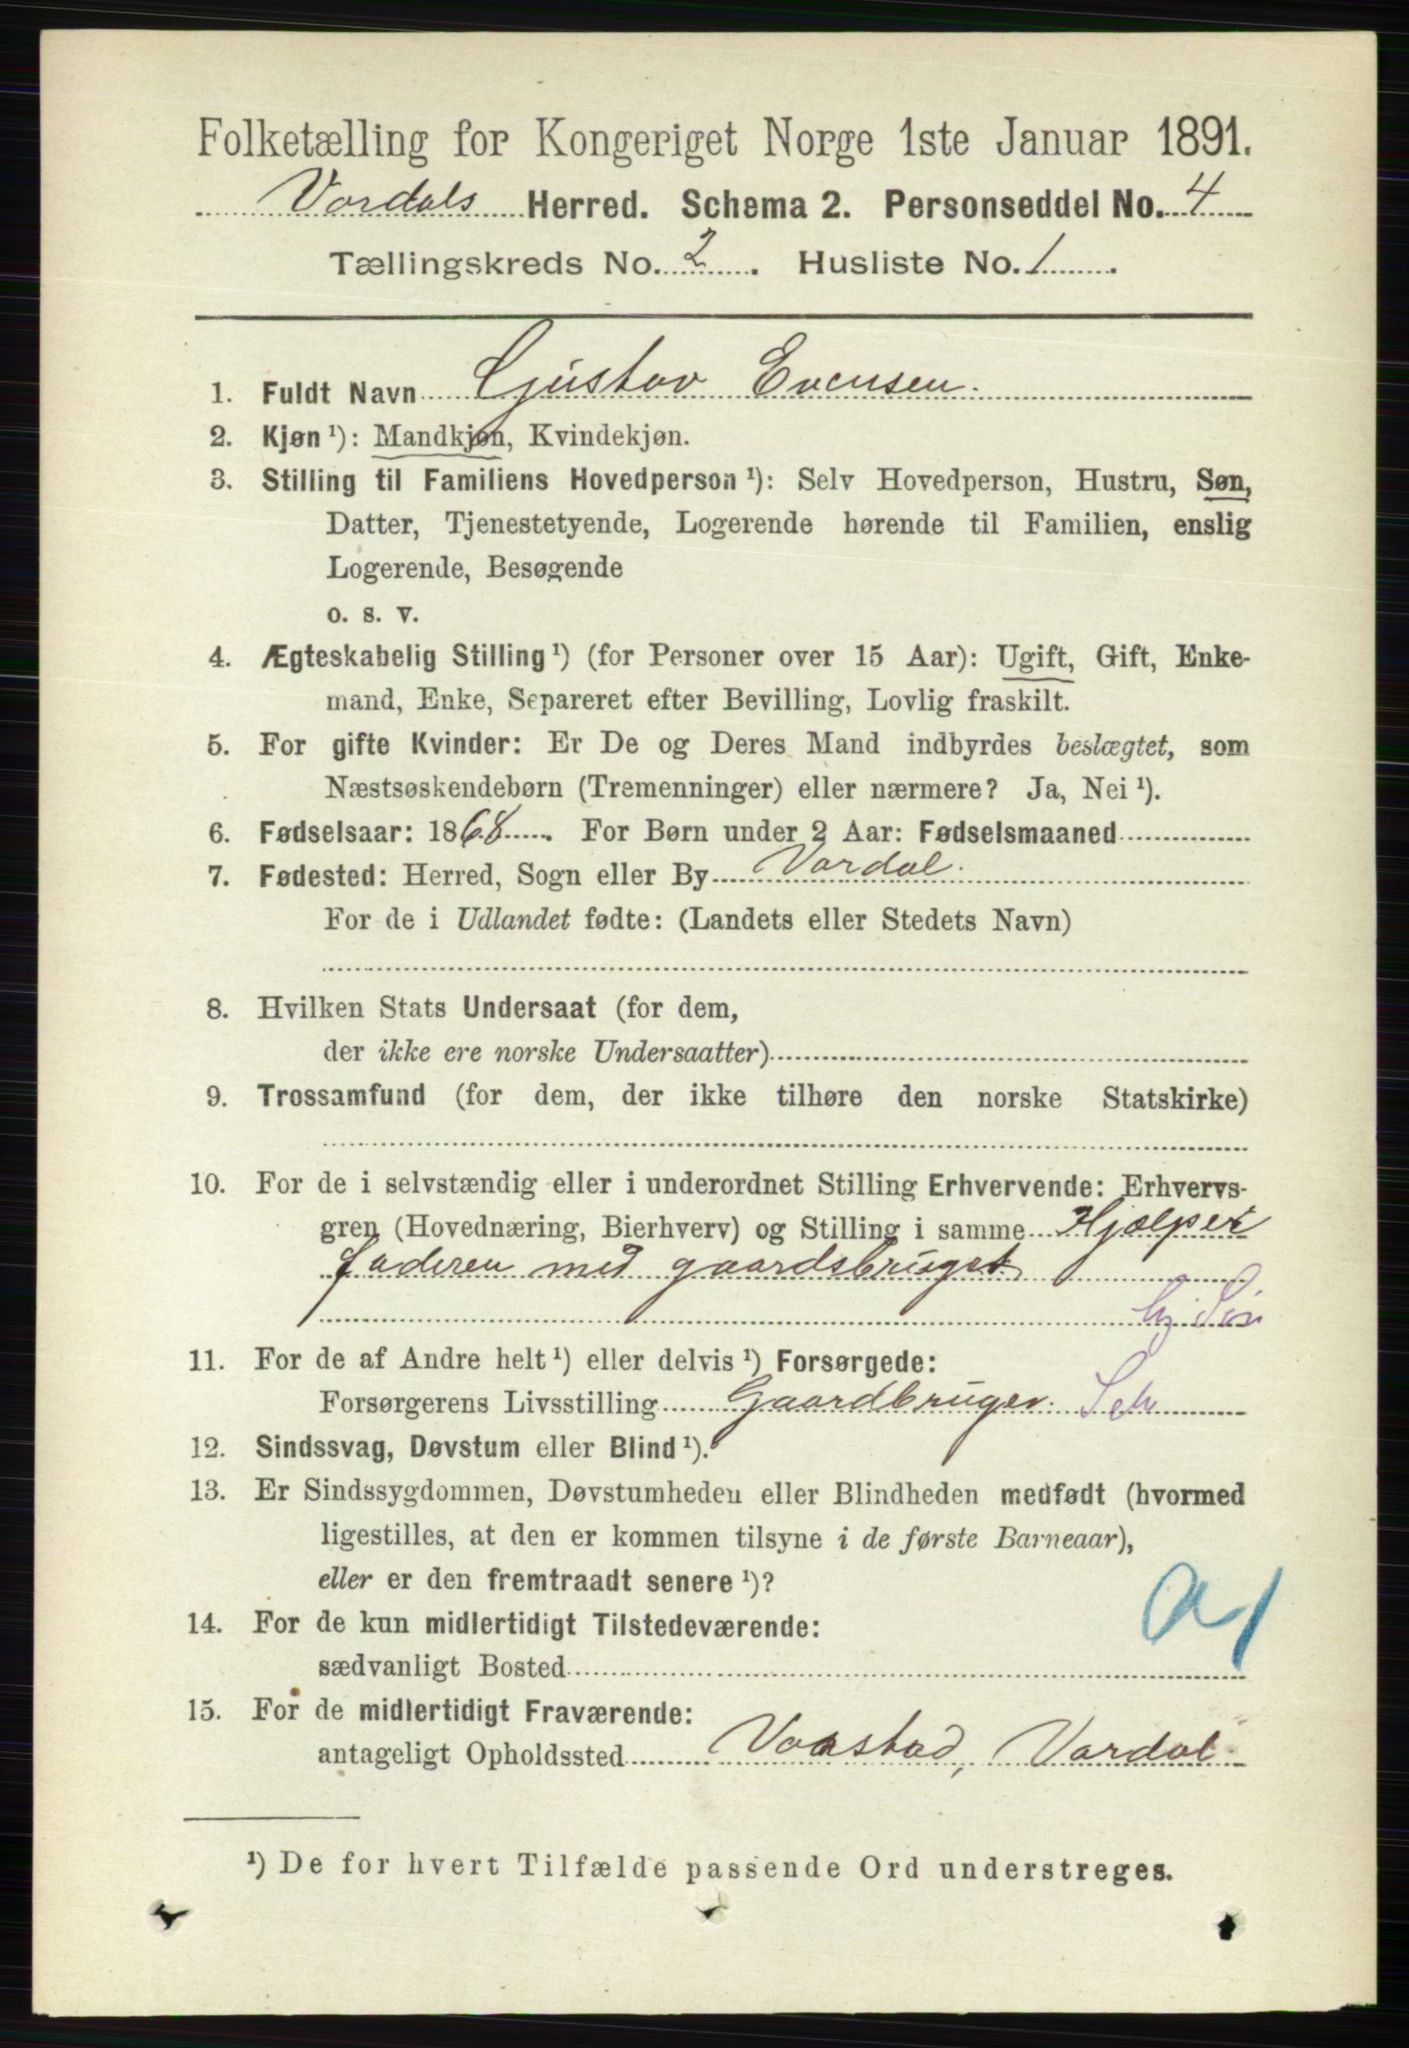 Folketælling for Kongeriget Norge 1ste Januar 1891.
Vardals Herred. Schema 2. Personseddel No. 4
Tællingskreds No. 2. Husliste No. 1.
1. Fuldt Navn Gustav Evensen.
2. Kjøn ¹): Mandkjøn, Kvindekjøn.
3. Stilling til Familiens Hovedperson ¹): Selv Hovedperson, Hustru, Søn,
Datter, Tjenestetyende, Logerende hørende til Familien, enslig
Logerende, Besøgende
o. s. v.
4. Ægteskabelig Stilling ¹) (for Personer over 15 Aar): Ugift, Gift, Enke-
mand, Enke, Separeret efter Bevilling, Lovlig fraskilt.
5. For gifte Kvinder: Er De og Deres Mand indbyrdes beslægtet, som
Næstsøskendebørn (Tremenninger) eller nærmere? Ja, Nei ¹).
6. Fødselsaar: 1868. For Børn under 2 Aar: Fødselsmaaned
7. Fødested: Herred, Sogn eller By Vardal.
For de i Udlandet fødte: (Landets eller Stedets Navn)
8. Hvilken Stats Undersaat (for dem,
der ikke ere norske Undersaatter)
9. Trossamfund (for dem, der ikke tilhøre den norske Statskirke)
10. For de i selvstændig eller i underordnet Stilling Erhvervende: Erhvervs-
gren (Hovednæring, Bierhverv) og Stilling i samme Hjælper
faderen med gaardsbruget
hj. Søn
11. For de af Andre helt ¹) eller delvis ¹) Forsørgede:
Forsørgerens Livsstilling Gaardbruger. Selv
12. Sindssvag, Døvstum eller Blind ¹).
13. Er Sindssygdommen, Døvstumheden eller Blindheden medfødt (hvormed
ligestilles, at den er kommen tilsyne i de første Barneaar),
eller er den fremtraadt senere ¹)?
14. For de kun midlertidigt Tilstedeværende:
sædvanligt Bosted
15. For de midlertidigt Fraværende:
antageligt Opholdssted Vaastad, Vardal
¹) De for hvert Tilfælde passende Ord understreges.